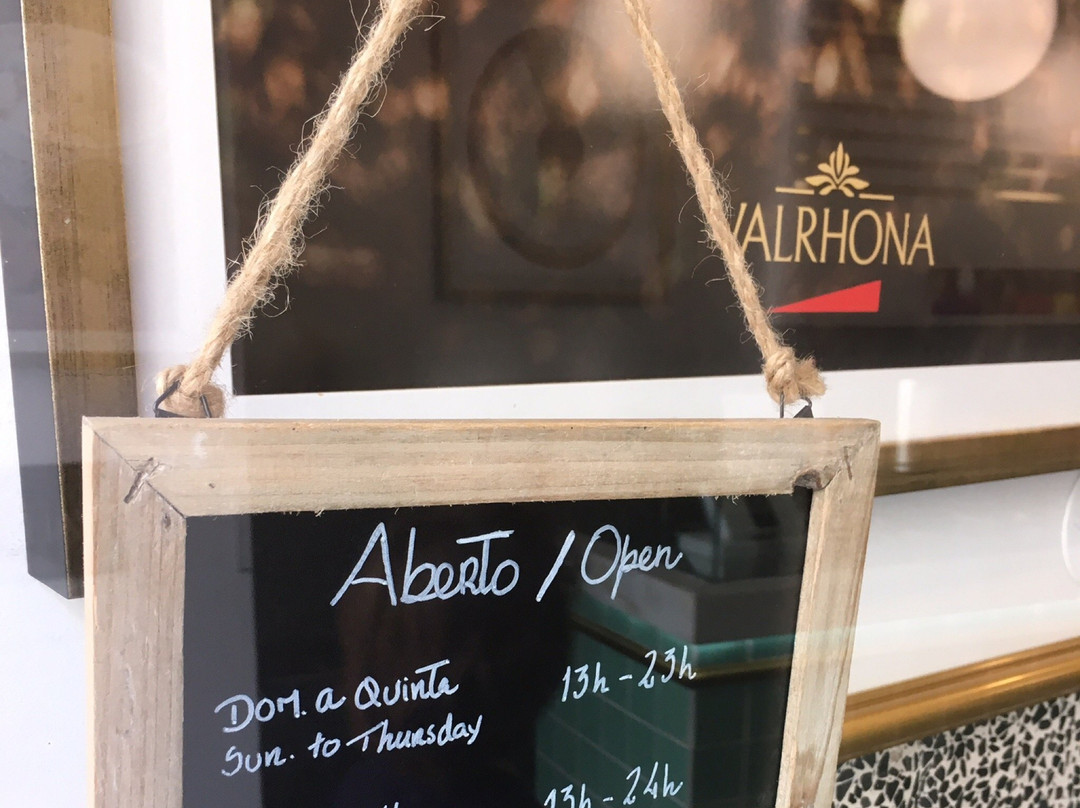 VALRHONA
Aberto / Open
Dom. a Quinta 13h - 23h
Sun. to Thursday
13h - 24h